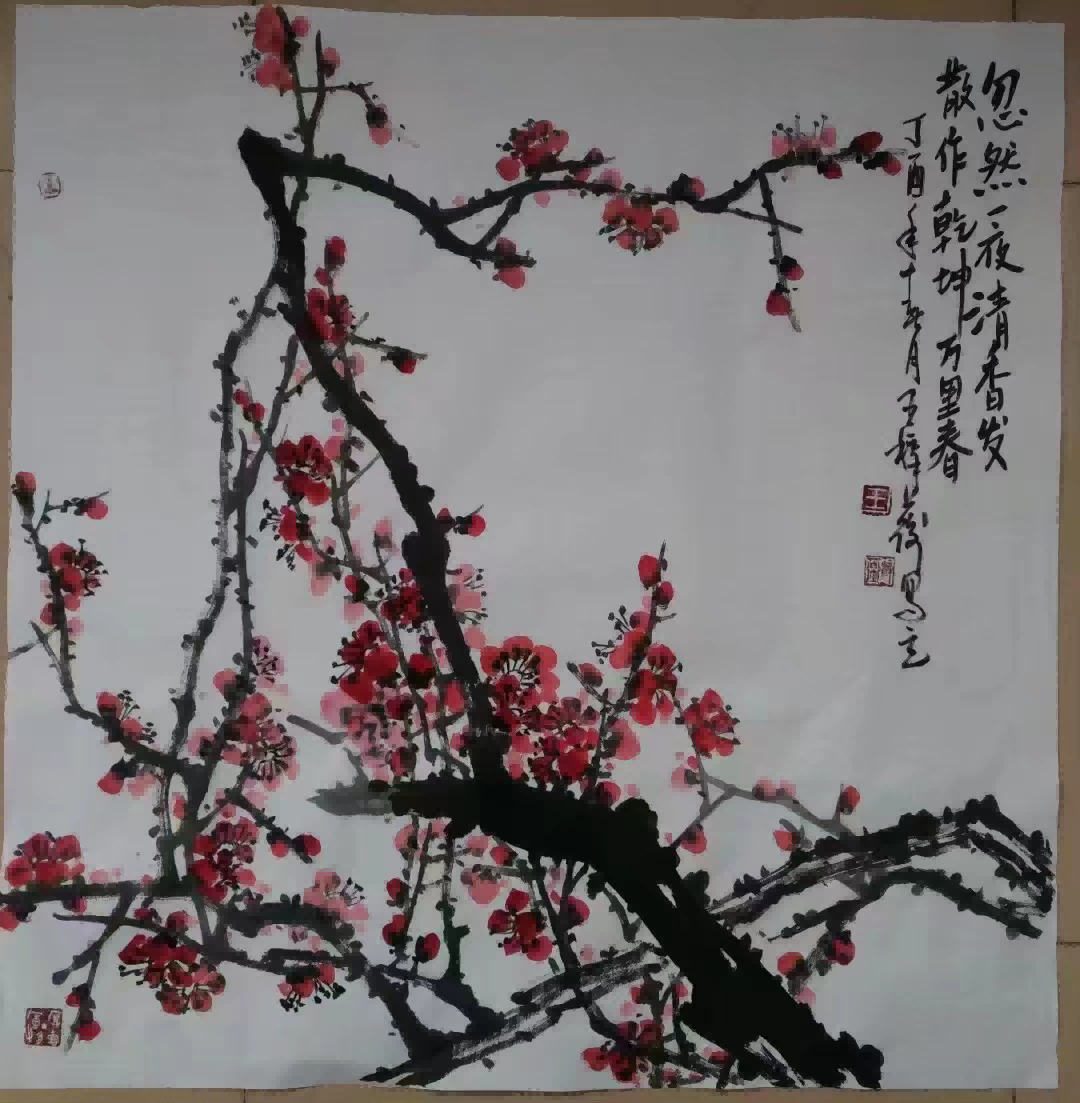 忽然一夜清香发
散作乾坤万里春
丁酉年十二月王梓
王